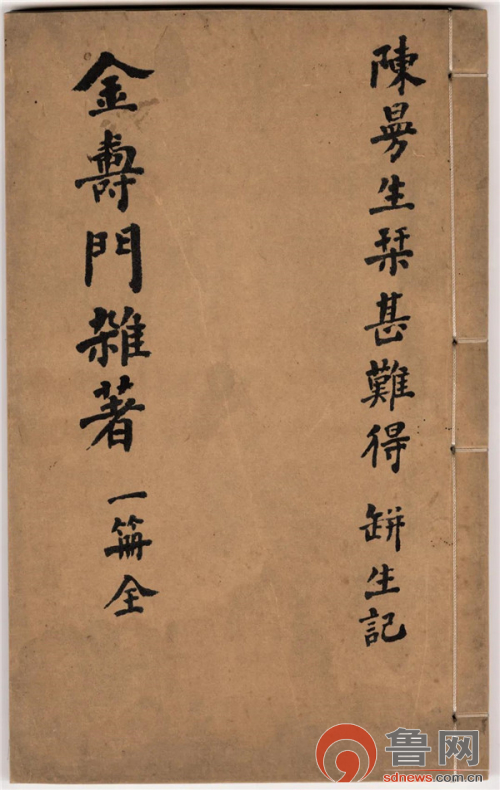 陳曼生栞甚難得 缾生記
金壽門雜著 一冊全
鲁网
sdnews.com.cn